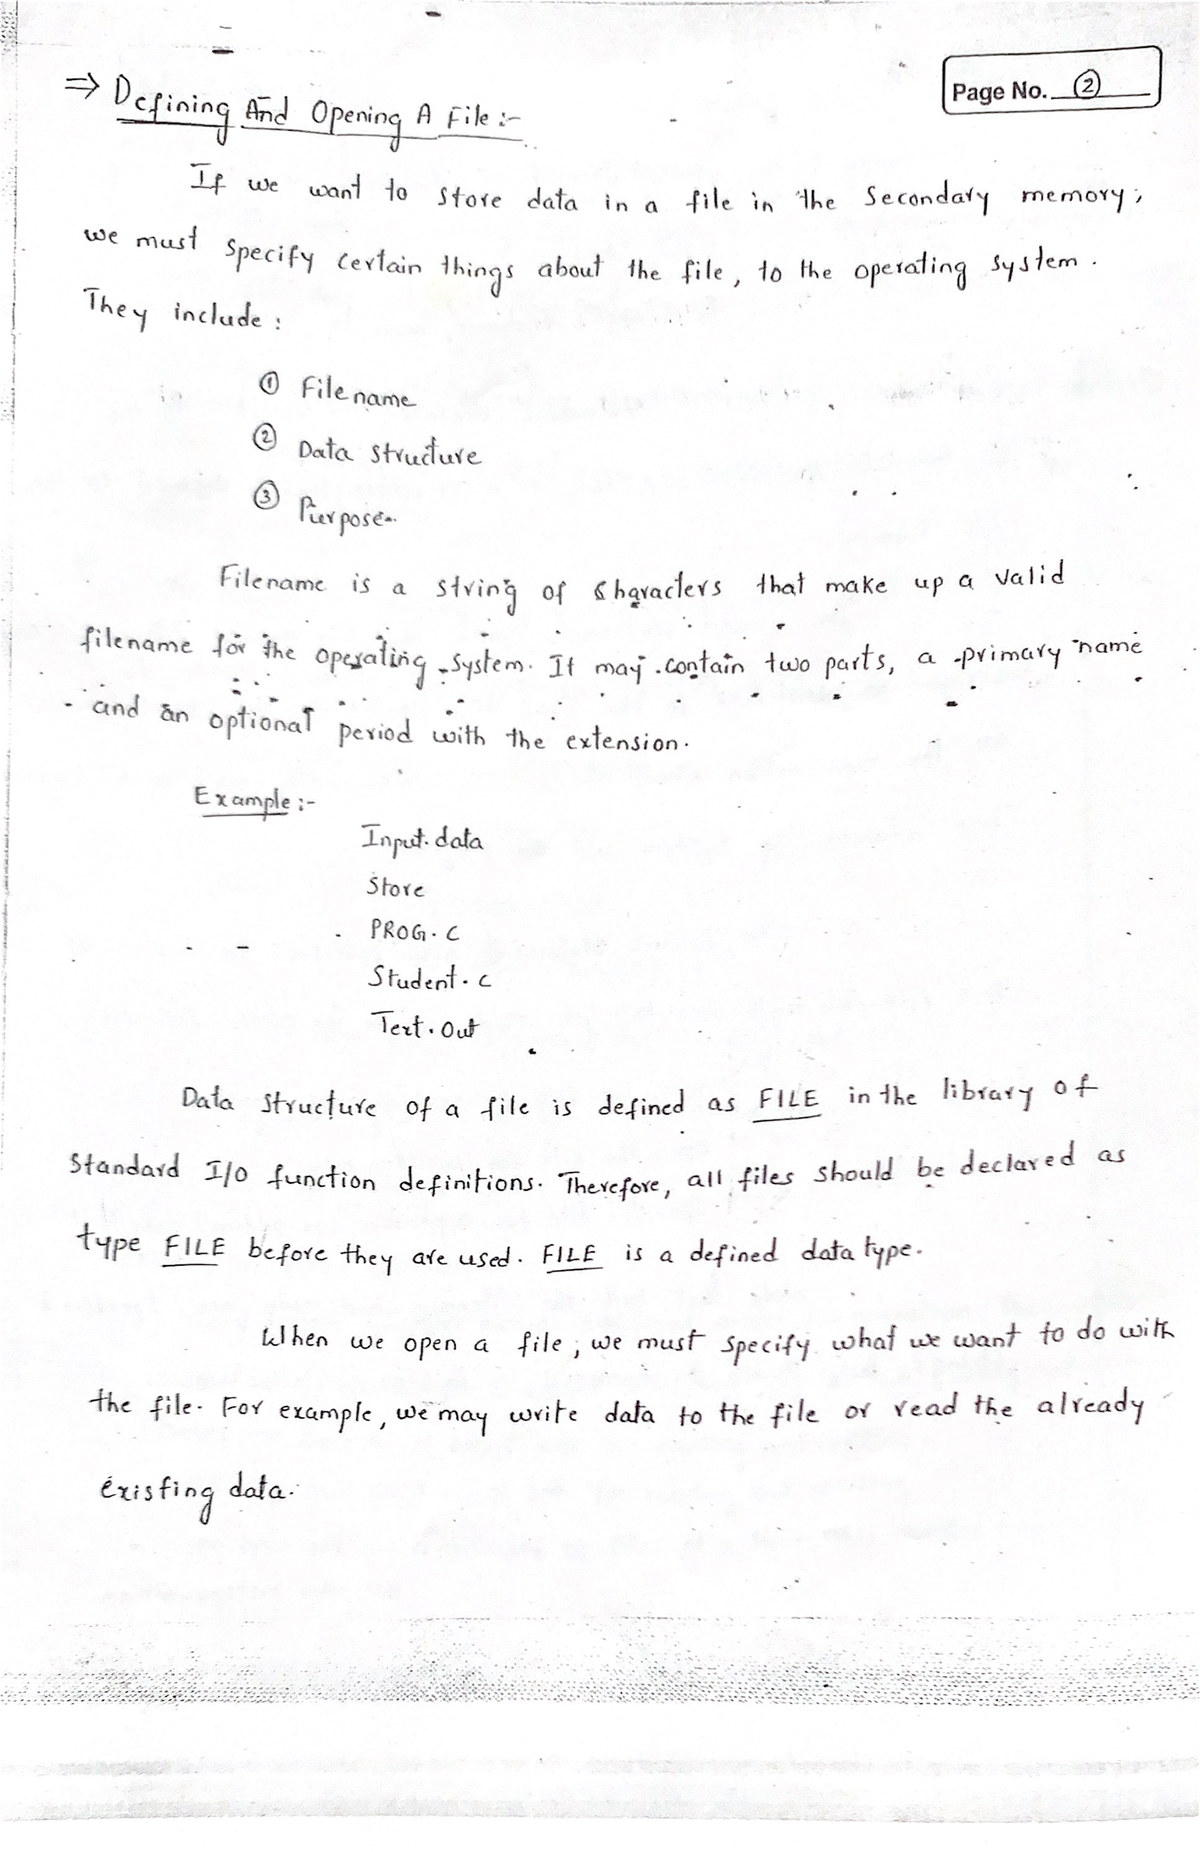 Page No. ②
⇒ Defining And Opening A File :-
If we want to store data in a file in the Secondary memory,
we must specify certain things about the file, to the operating system.
They include :
① File name
② Data structure
③ Purpose.
Filename is a string of characters that make up a valid
filename for the operating system. It may contain two parts, a primary name
and an optional period with the extension.
Example :-
Input.data
Store
PROG.C
Student.c
Text.out
Data structure of a file is defined as FILE in the library of
Standard I/O function definitions. Therefore, all files should be declared as
type FILE before they are used. FILE is a defined data type.
When we open a file, we must specify what we want to do with
the file. For example, we may write data to the file or read the already
existing data.